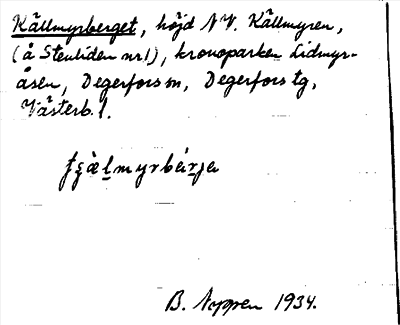 Källmyrberget, höjd NV. Källmyren,
(å Stenliden nr 1), kronoparken Lidmyr-
åsen, Degerfors sn, Degerfors tg,
Västerb. l.
B. Noppen 1934.